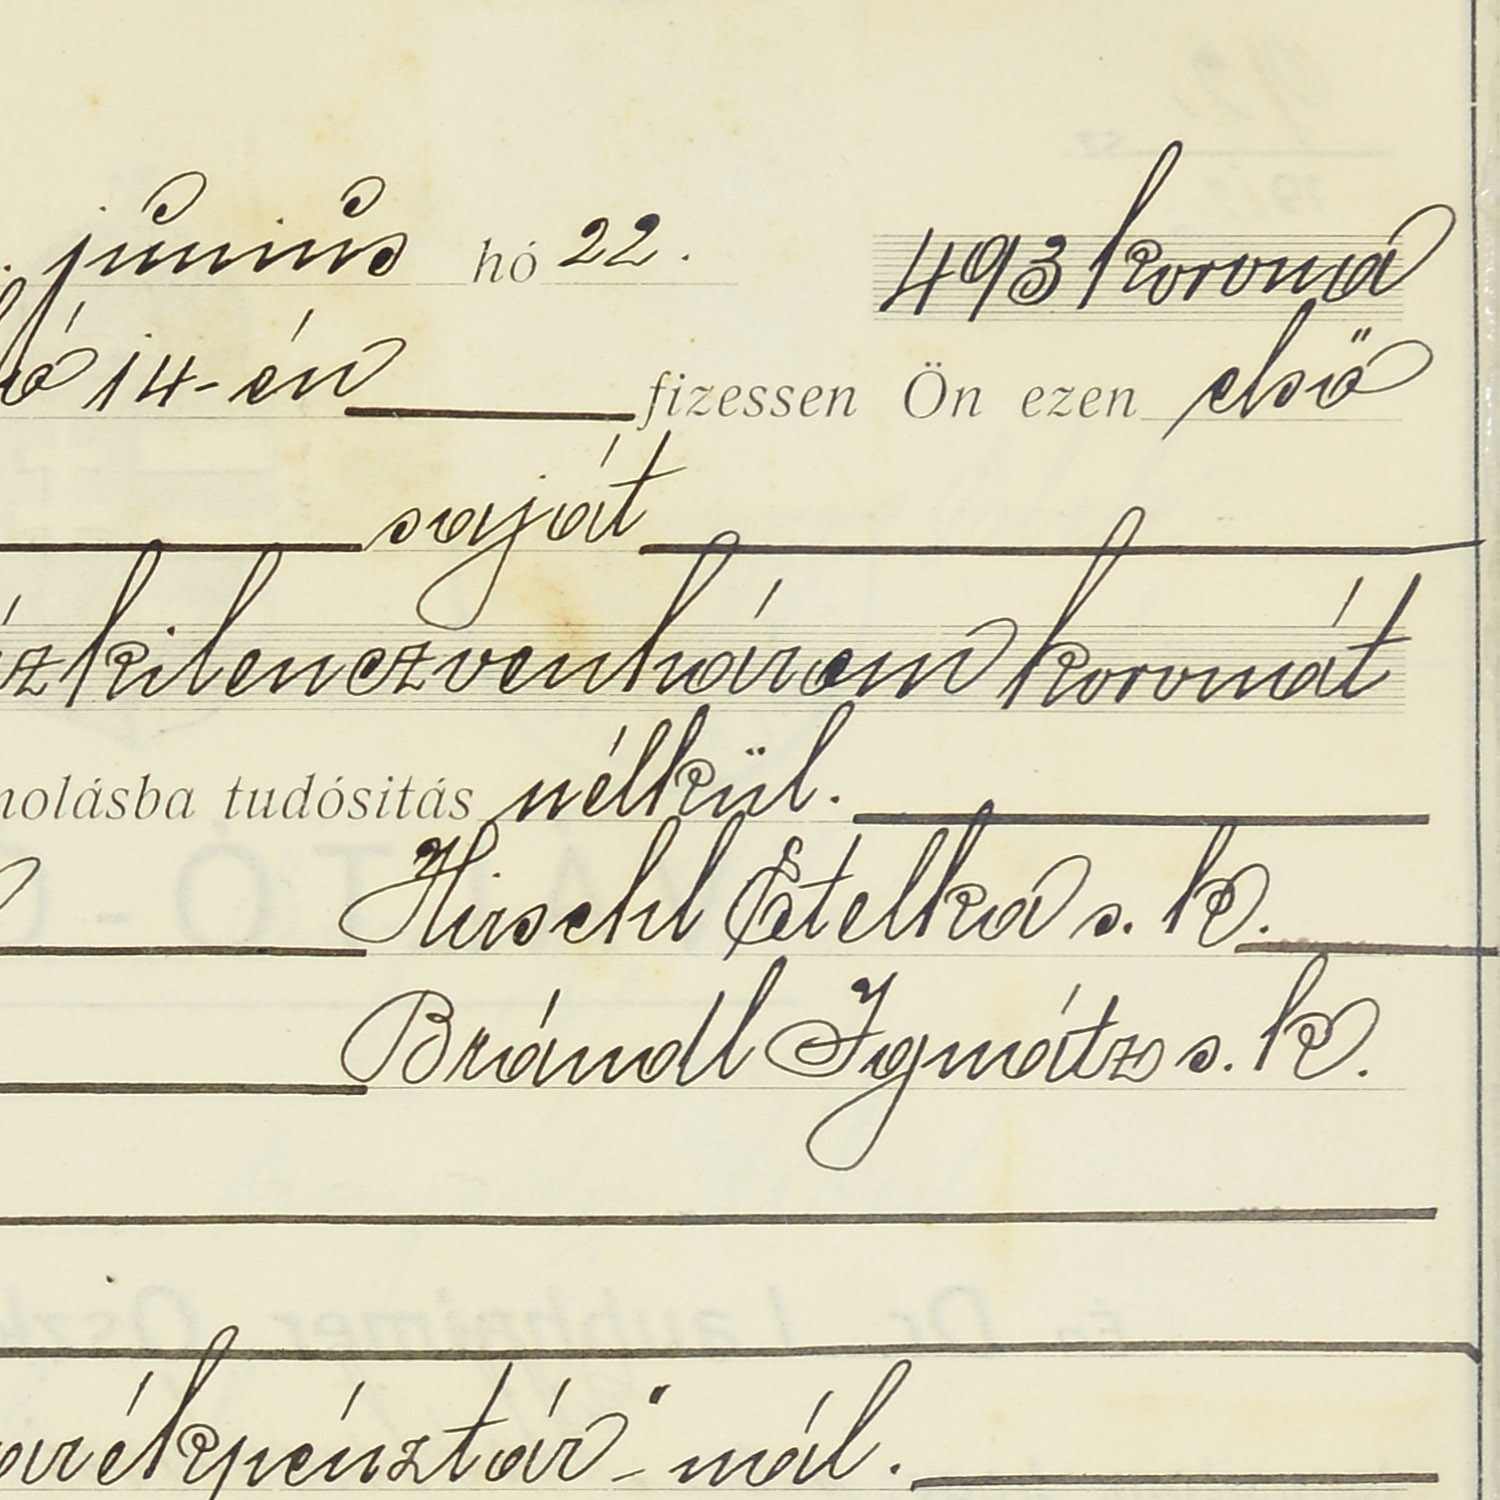 . június hó 22. 493 korona
hó 14-én fizessen Ön ezen első
saját
ézkilenczvenhárom koronát
molásba tudósitás nélkül.
Hirschl Etelka s. k.
Brándl Ignátz s. k.
arékpénztár"-nál.